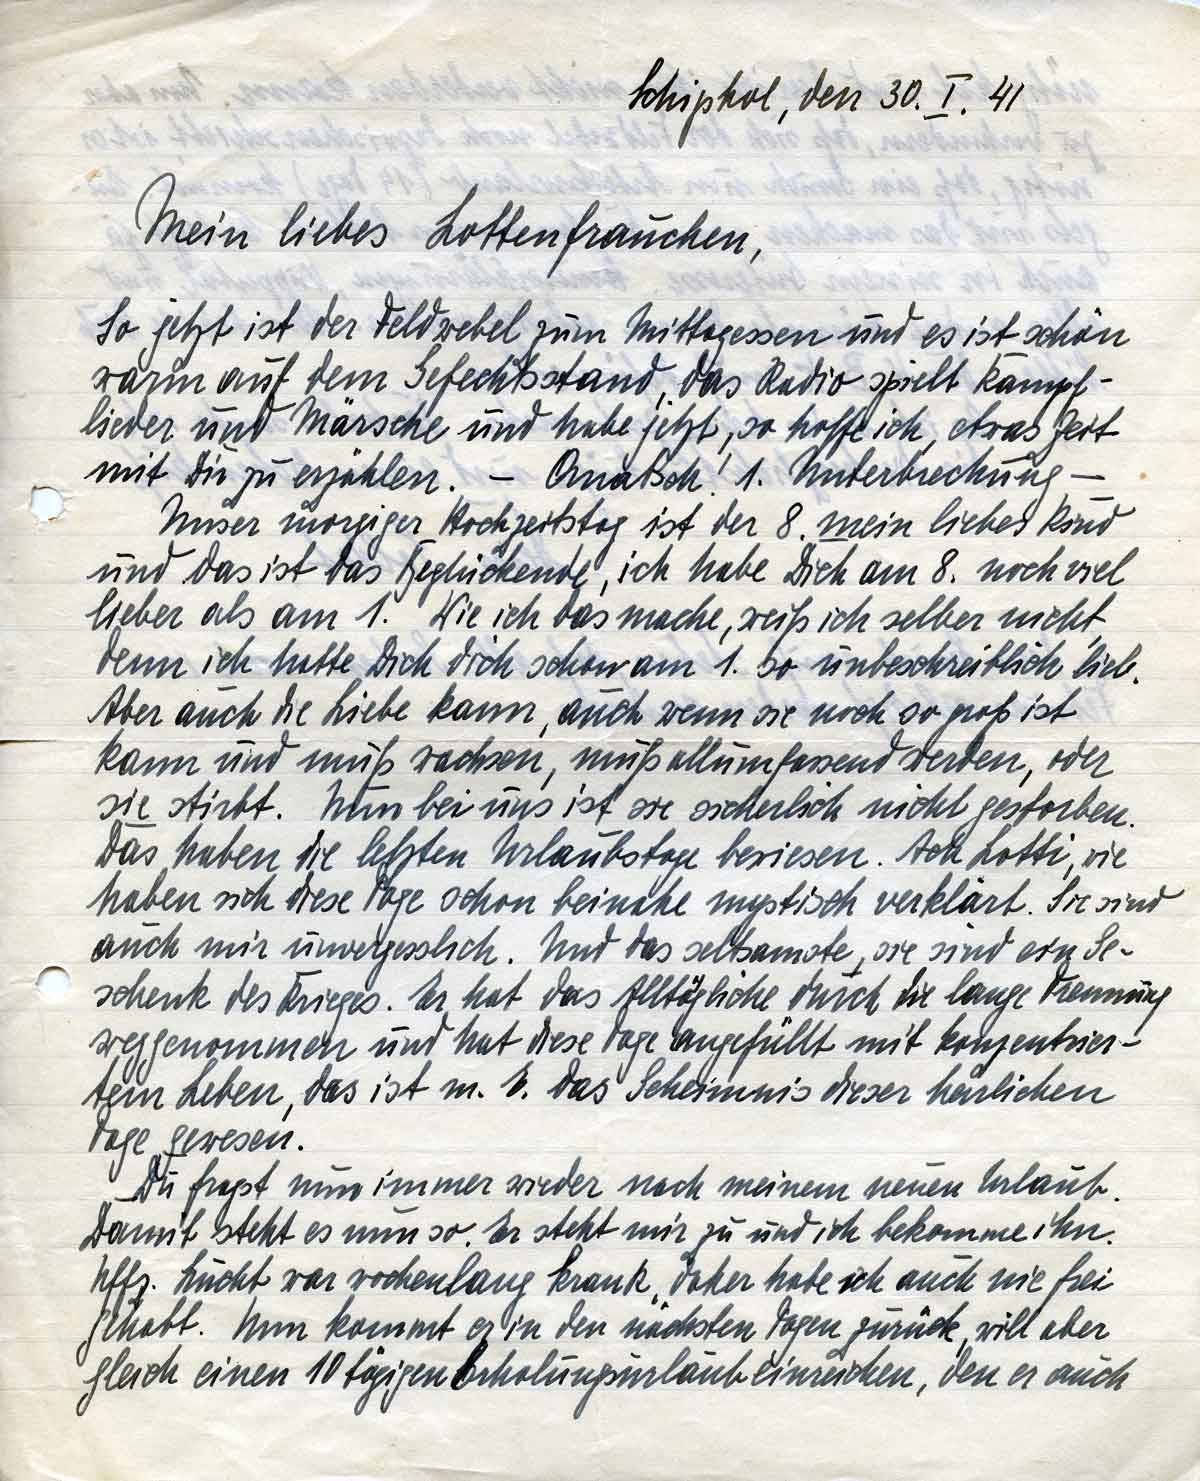 Schiphol, den 30. I. 41
Mein liebes Lottenfrauchen,
So jetzt ist der Feldwebel zum Mittagessen und es ist schön
warm auf dem Gefechtsstand, das Radio spielt Kampf-
lieder und Märsche und habe jetzt, so hoffe ich, etwas Zeit
mit Dir zu erzählen. – Quatsch! 1. Unterbrechung –
Unser morgiger Hochzeitstag ist der 8. mein liebes Kind
und das ist das Beglückende, ich habe Dich am 8. noch viel
lieber als am 1. Wie ich das mache, weiß ich selber nicht,
denn ich hatte Dich dich schon am 1. so unbeschreiblich lieb.
Aber auch die Liebe kann, auch wenn sie noch so groß ist
kann und muß wachsen, muß allumfassend werden, oder
sie stirbt. Nun bei uns ist sie sicherlich nicht gestorben.
Das haben die letzten Urlaubstage bewiesen. Ach Lotti, wie
haben sich diese Tage schon beinahe mystisch verklärt. Sie sind
auch mir unvergesslich. Und das seltsamste, sie sind ein Ge-
schenk des Krieges. Er hat das Alltägliche durch die lange Trennung
weggenommen und hat diese Tage angefüllt mit konzentrier-
tem Leben, das ist m. E. das Geheimnis dieser herrlichen
Tage gewesen.
Du fragst nun immer wieder nach meinem neuen Urlaub.
Damit steht es nun so. Er steht mir zu und ich bekomme ihn.
Uffz. Lucht war wochenlang krank, daher habe ich auch nie frei
gehabt. Nun kommt er in den nächsten Tagen zurück, will aber
gleich einen 10 tägigen Erholungsurlaub einreichen, den er auch